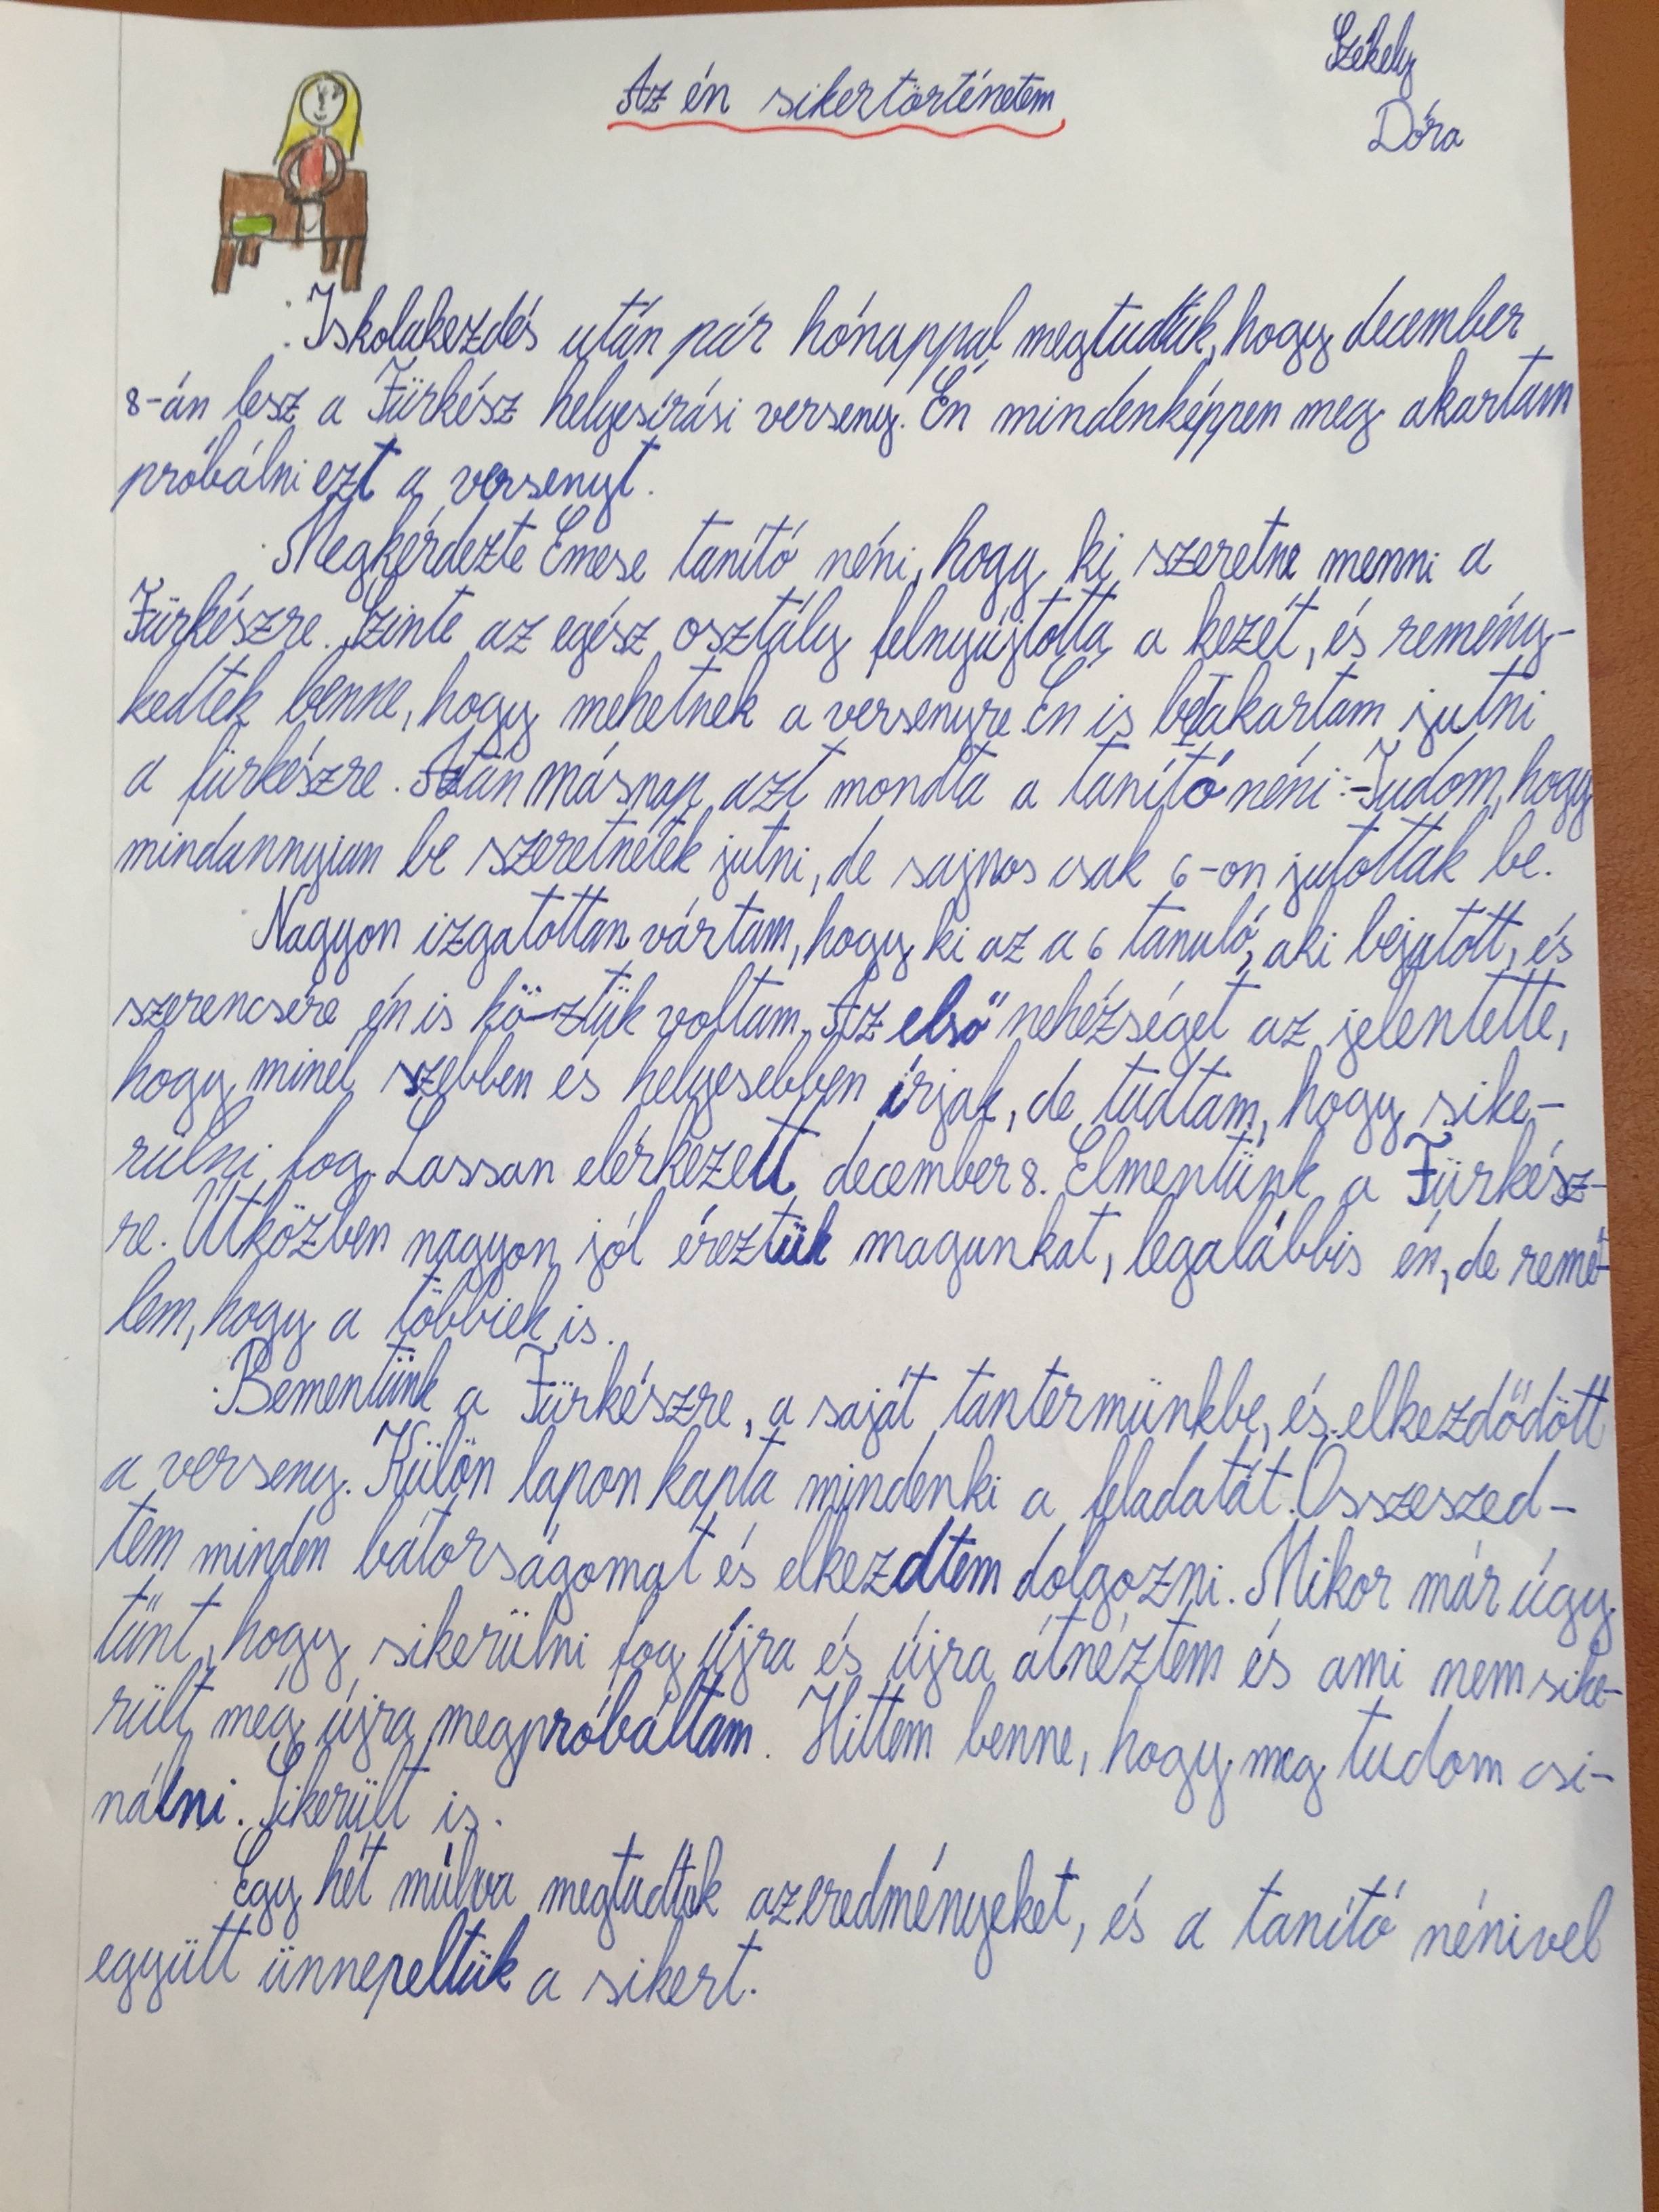 Székely
Dóra
Az én sikertörténetem
Iskolakezdés után pár hónappal megtudtuk, hogy december
8-án lesz a Fürkész helyesírási verseny. Én mindenképpen meg akartam
próbálni ezt a versenyt.
Megkérdezte Emese tanító néni, hogy ki szeretne menni a
Fürkészre. Szinte az egész osztály felnyújtotta a kezét, és remény-
kedtek benne, hogy mehetnek a versenyre. Én is be akartam jutni
a fürkészre. Aztán másnap azt mondta a tanító néni: -Tudom, hogy
mindannyian be szeretnétek jutni, de sajnos csak 6-on jutottak be.
Nagyon izgatottan vártam, hogy ki az a 6 tanuló, aki bejutott, és
szerencsére én is köztük voltam. Az első nehézséget az jelentette,
hogy minél szebben és helyesebben írjak, de tudtam, hogy sike-
rülni fog. Lassan elérkezett december 8. Elmentünk a Fürkész-
re. Útközben nagyon jól éreztük magunkat, legalábbis én, de remé-
lem, hogy a többiek is.
Bementünk a Fürkészre, a saját tantermünkbe, és elkezdődött
a verseny. Külön lapon kapta mindenki a feladatát. Összeszed-
tem minden bátorságomat és elkezdtem dolgozni. Mikor már úgy
tűnt, hogy sikerülni fog újra és újra átnéztem és ami nem sike-
rült még újra megpróbáltam. Hittem benne, hogy meg tudom csi-
nálni. Sikerült is.
Egy hét múlva megtudtuk az eredményeket, és a tanító nénivel
együtt ünnepeltük a sikert.